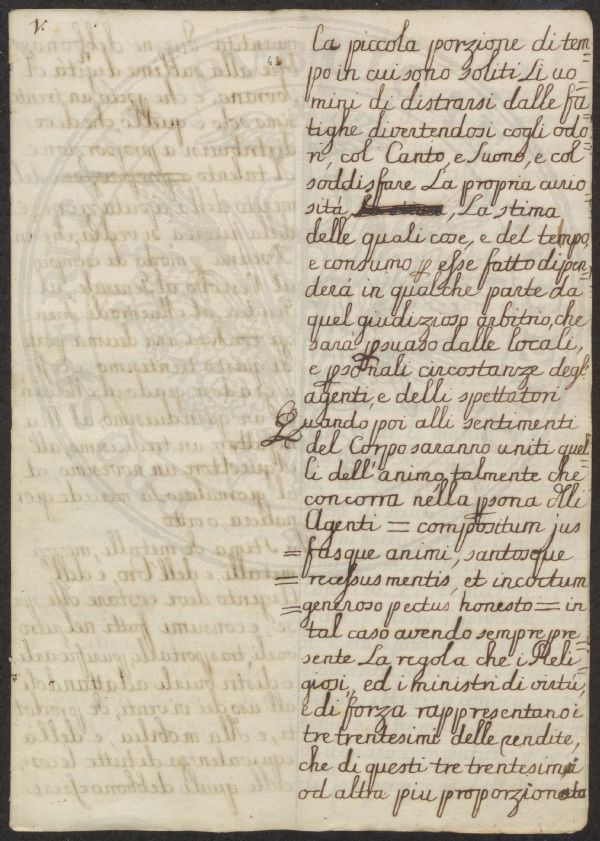 V.
La piccola porzione di tem=
po in cui sono soliti Li uo=
mini di distrarsi dalle fa=
tighe divertendosi cogli odo=
ri, col Canto, e Suono, e col
soddisfare La propria curio=
sità, La stima
delle quali cose, e del tempo,
e consumo p esse fatto dipen=
derà in qualche parte da
quel giudizioso arbitrio, che
sarà psuaso dalle locali,
e psonali circostanze degl'
agenti, e delli spettatori
Quando poi alli sentimenti
del Corpo saranno uniti quel=
li dell'animo talmente che
concorra nella psona dlli
Agenti = compositum jus
= fasque animi, santosque
= recessus mentis, et incoctum
= generoso pectus honesto = in
tal caso avendo sempre pre=
sente La regola che i Reli=
giosi, ed i ministri di virtù,
e di forza rappresentano i
tre trentesimi delle rendite,
che di questi tre trentesimi
od altra piu proporzionata